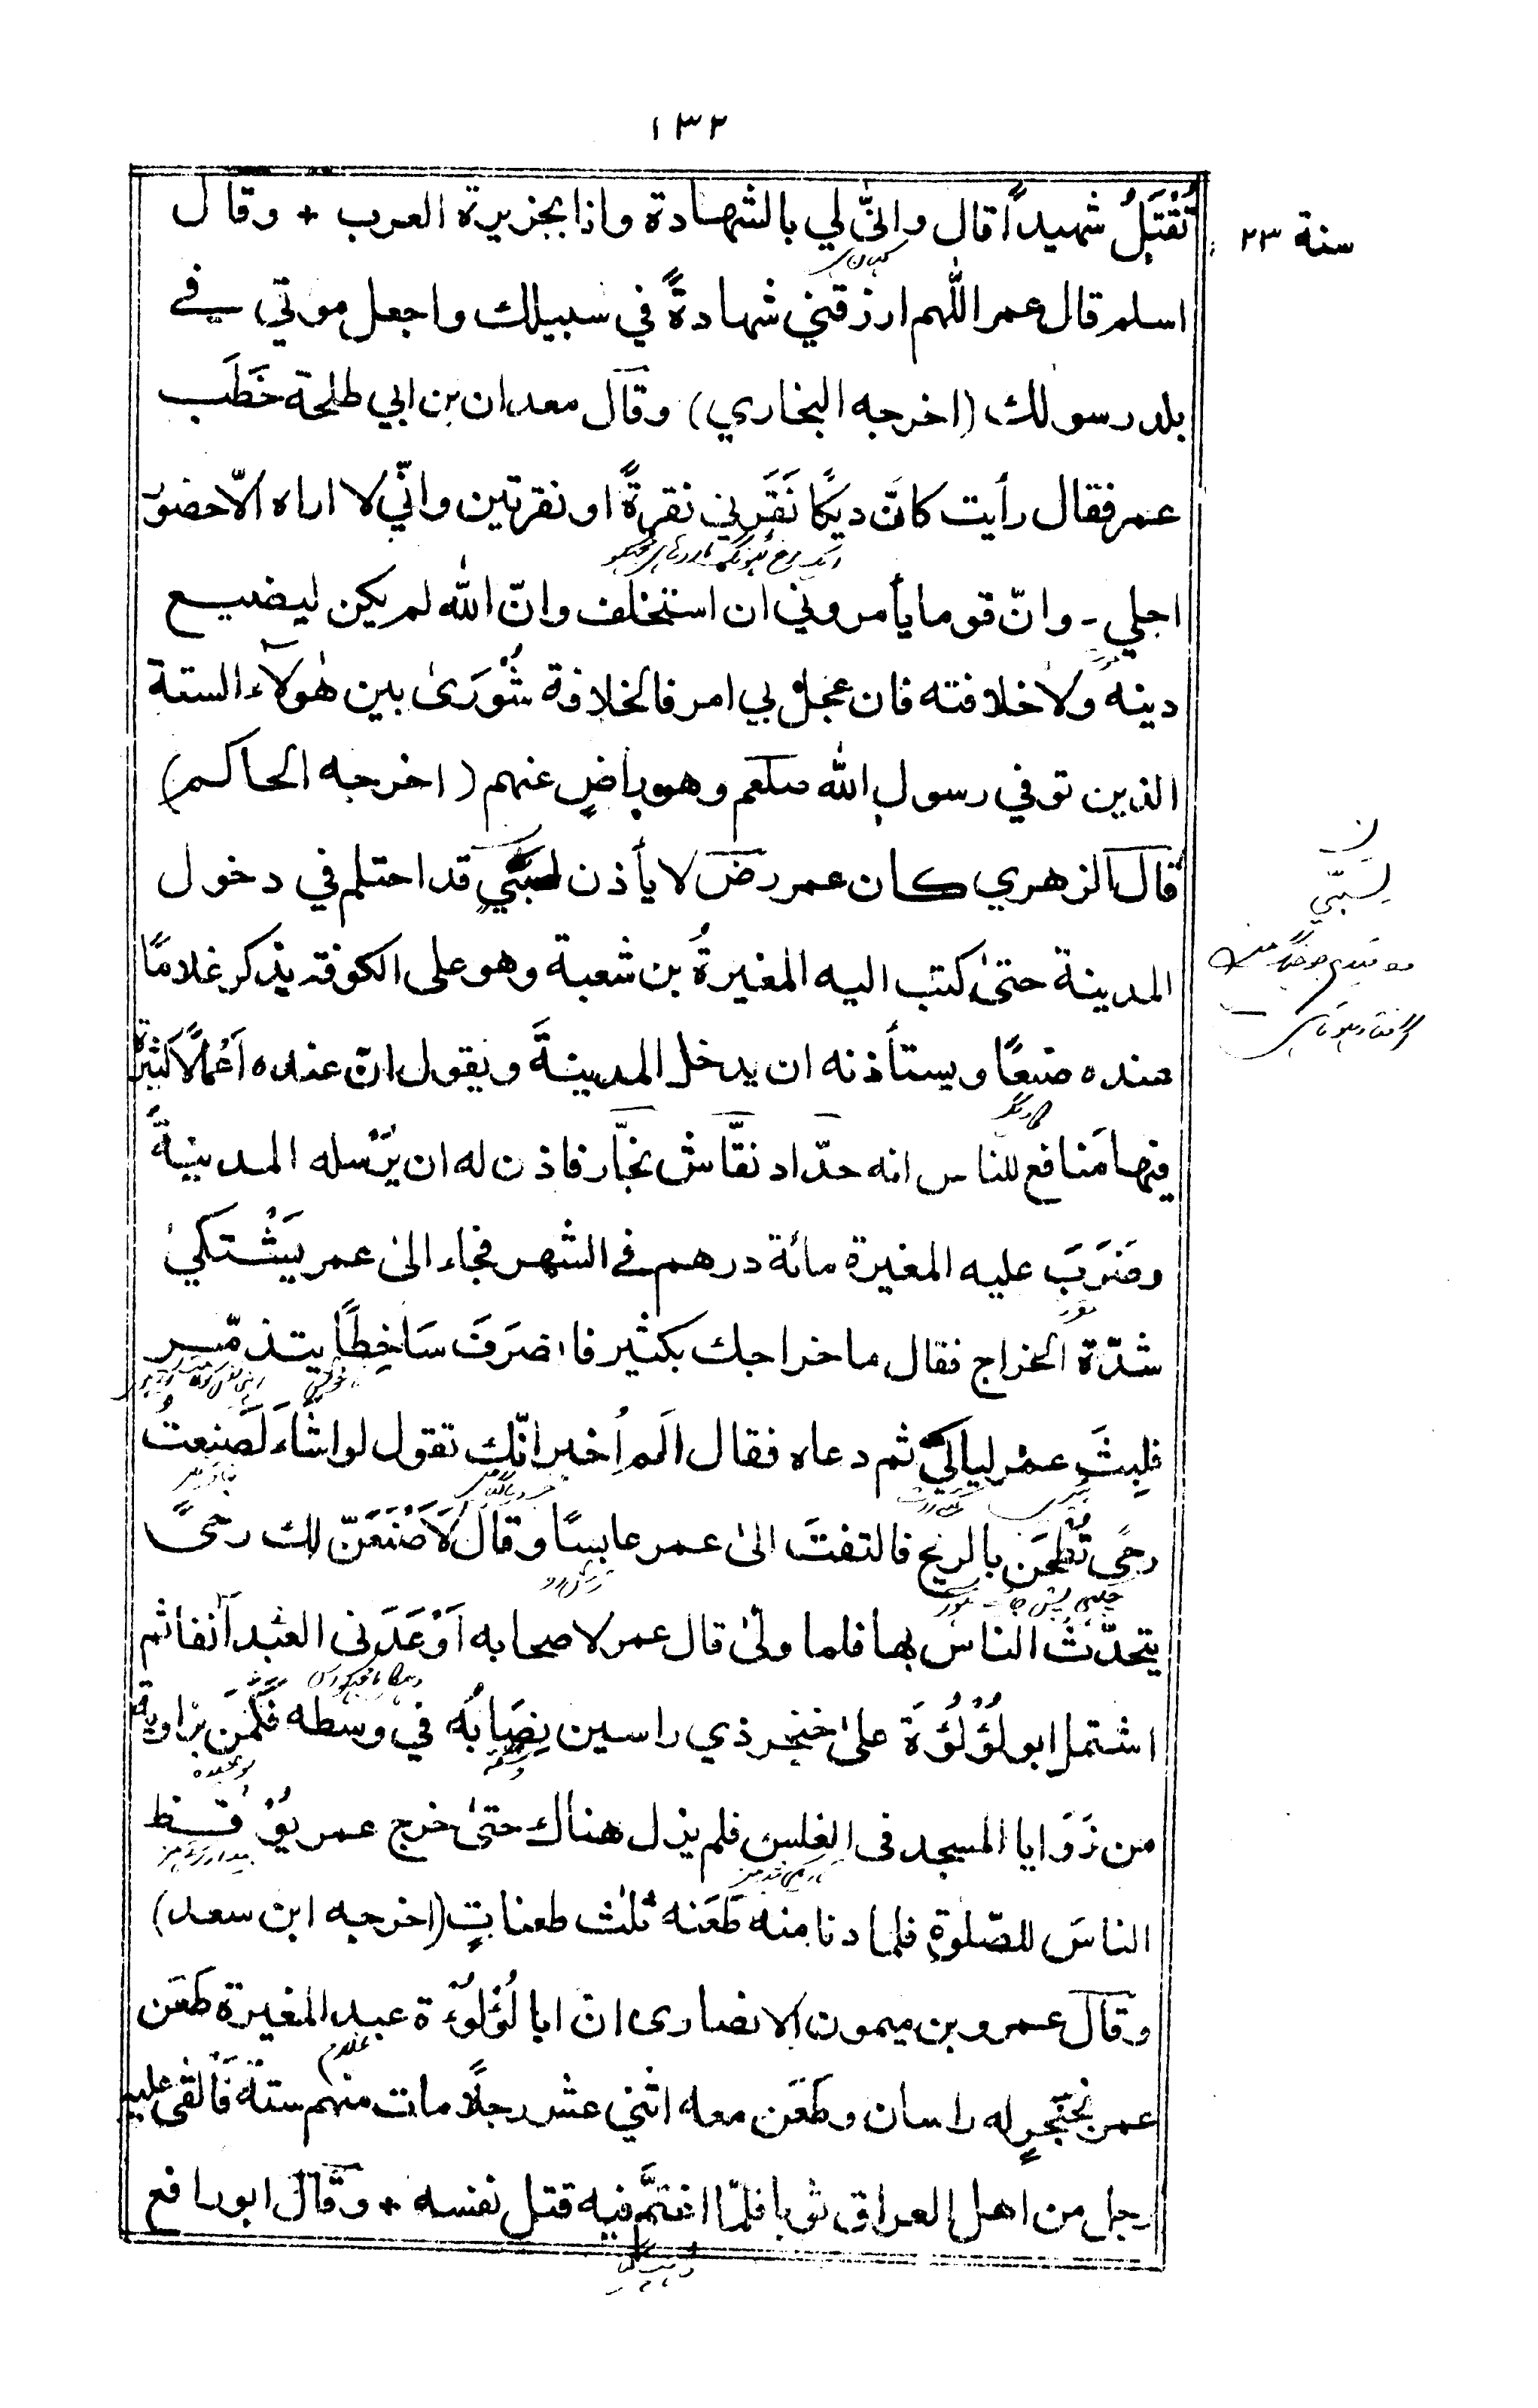 ١٣٢
سنة ٢٣
تُقْتَلُ شهيداً قال وانّٰى لي بالشهادة وانا بجزيرة العرب + وقال
اسلم قال عمر اللّٰهم ارزقني شهادةً في سبيلك واجعل موتي في
بلد رسولك (اخرجه البخاري) وقال معدان بن ابي طلحة خَطَب
عمر فقال رأيت كانّ ديكًا نَقَرني نقرةً او نقرتين وانّي لا اراه الّا حضور
اجلي - وانّ قوما يأمروني ان استخلف وانّ الله لم يكن ليضيع
دينه ولا خلافته فان عجل بي امر فالخلافة شُوْرَىٰ بين هٰولاء الستة
الذين توفي رسول الله صلعم وهو راضٍ عنهم (اخرجه الحاكم)
قال الزهري كان عمر رض لا يأذن لسَبْيٍ قد احتلم في دخول
لسَبّي
المدينة حتىٰ كتب اليه المغيرةُ بن شعبة وهو على الكوفة يذكر غلامًا
عنده صَنِعًا ويستأذنه ان يدخل المدينةَ ويقول انّ عنده اَعْمالًا كثيرة
فيها مَنافع للناس انه حدّاد نقّاش نجّار فاذن له ان يُرْسله المدينةَ
وضَرَبَ عليه المغيرة مائة درهم في الشهر فجاء الىٰ عمر يَشْتكي
شدّة الخراج فقال ما خراجك بكثير فانصَرَفَ سَاخِطًا يتذمّر
فلبِثَ عمر لياليَ ثم دعاه فقال اَلم اُخبر انّك تقول لو اشَاءُ لَصنعتُ
رحًى تُطْحَن بالريح فالتفتَ الىٰ عمر عابسًا وقال لَاَصْنَعَنّ لك رحًى
يتحدّث الناس بها فلما ولّىٰ قال عمر لاصحابه اَوْعَدَنى العَبْد آنفا ثم
اشتمل ابو لُؤْلُؤَة علىٰ خنجر ذي راسين نِصَابُه في وسطه فكَمَنَ بزاوية
من زَوَايا المسجد فى الغلس فلم يزل هناك حتىٰ خرج عمر يُوْقظ
الناسَ للصّلوٰة فلما دنا منه طَعَنه ثلٰث طعناتٍ (اخرجه ابن سعد)
وقال عمرو بن ميمون الانصارى ان ابا لُؤْلُؤَة عبد المغيرة طَعَن
غلام
عمر بخنجرٍ له راسان وطَعَن معه اثني عشر رجلًا مات منهم ستة فَالقٰى عليه
رجل من اهل العراق ثوبا فلمّا اغتمَّ فيه قتل نفسه + وقال ابو رافع